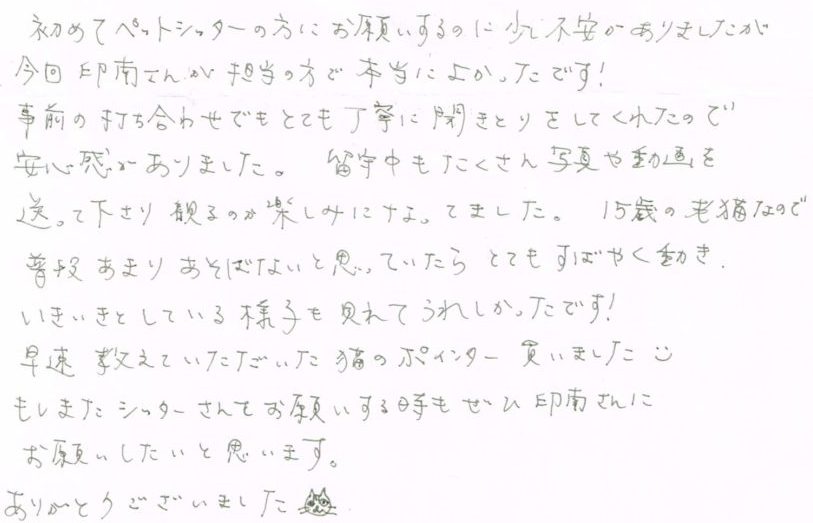 初めてペットシッターの方にお願いするのに少し不安がありましたが
今回印南さんが担当の方で本当によかったです!
事前の打ち合わせでもとても丁寧に聞きとりをしてくれたので
安心感がありました。 留守中もたくさん写真や動画を
送って下さり観るのが楽しみになってました。 15歳の老猫なので
普段あまりあそばないと思っていたらとてもすばやく動き、
いきいきとしている様子も見れてうれしかったです!
早速教えていただいた猫のポインター買いました
もしまたシッターさんをお願いする時もぜひ印南さんに
お願いしたいと思います。
ありがとうございました